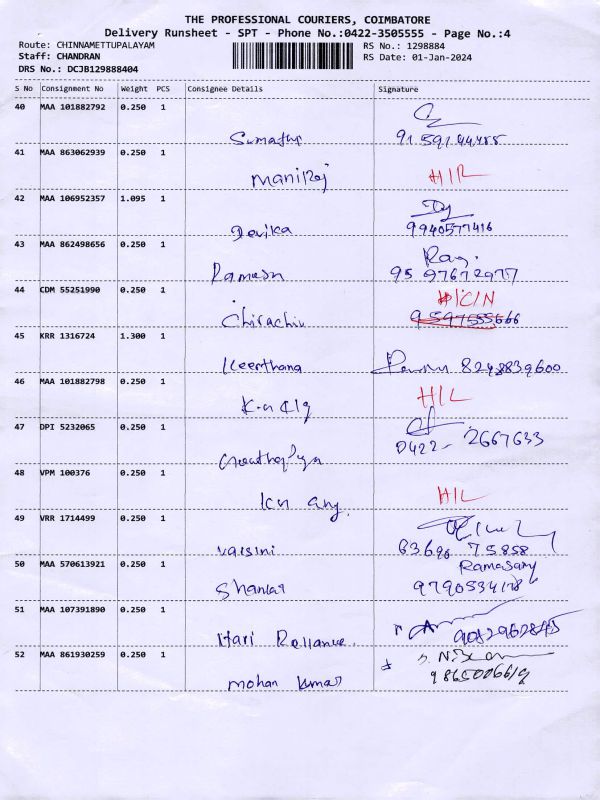 THE PROFESSIONAL COURIERS, COIMBATORE
Delivery Runsheet - SPT - Phone No.:0422-3505555 - Page No.:4
Route: CHINNAMETTUPALAYAM RS No.: 1298884
Staff: CHANDRAN RS Date: 01-Jan-2024
DRS No.: DCJB129888404
S No Consignment No Weight PCS Consignee Details Signature
40 MAA 101882792 0.250 1
Sumathi
41 MAA 863062939 0.250 1
Maniraj
42 MAA 106952357 1.095 1
Devika 9940577416
43 MAA 862498656 0.250 1
Ramesh 95 97672977
44 CDM 55251990 0.250 1
9597555666
45 KRR 1316724 1.300 1
Keerthana 8248839600
46 MAA 101882798 0.250 1
47 DPI 5232065 0.250 1
0422- 2667633
48 VPM 100376 0.250 1
49 VRR 1714499 0.250 1
Varsini 63696 75858
50 MAA 570613921 0.250 1 Ramasamy
Shankar
51 MAA 107391890 0.250 1
Hari Reliance
52 MAA 861930259 0.250 1
Mohan Kumar